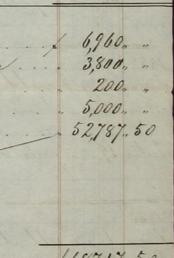 6,960 „ „
3,800 „ „
200 „ „
5,000 „ „
52,787 „ 50